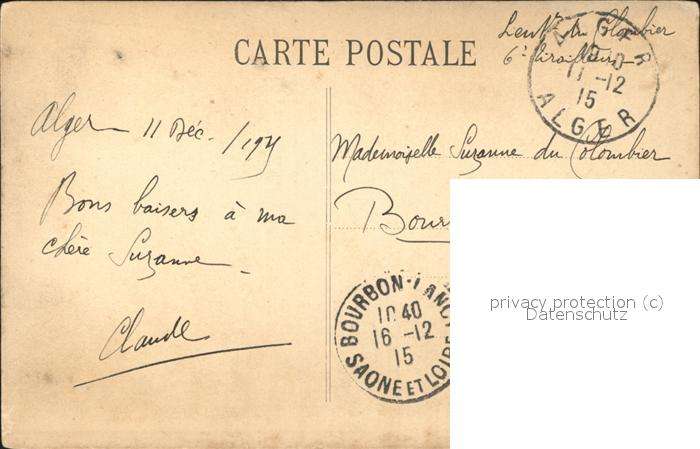 CARTE POSTALE
Lieut. du Colombier
6e Tirailleurs
ALGER
11 -12
15
ALGER
Alger 11 Déc. /1915
Bons baisers à ma
chère Suzanne
Claude
Mademoiselle Suzanne du Colombier
Bour
BOURBON-LANCY
10 40
16 -12
15
SAONE ET LOIRE
privacy protection (c)
Datenschutz